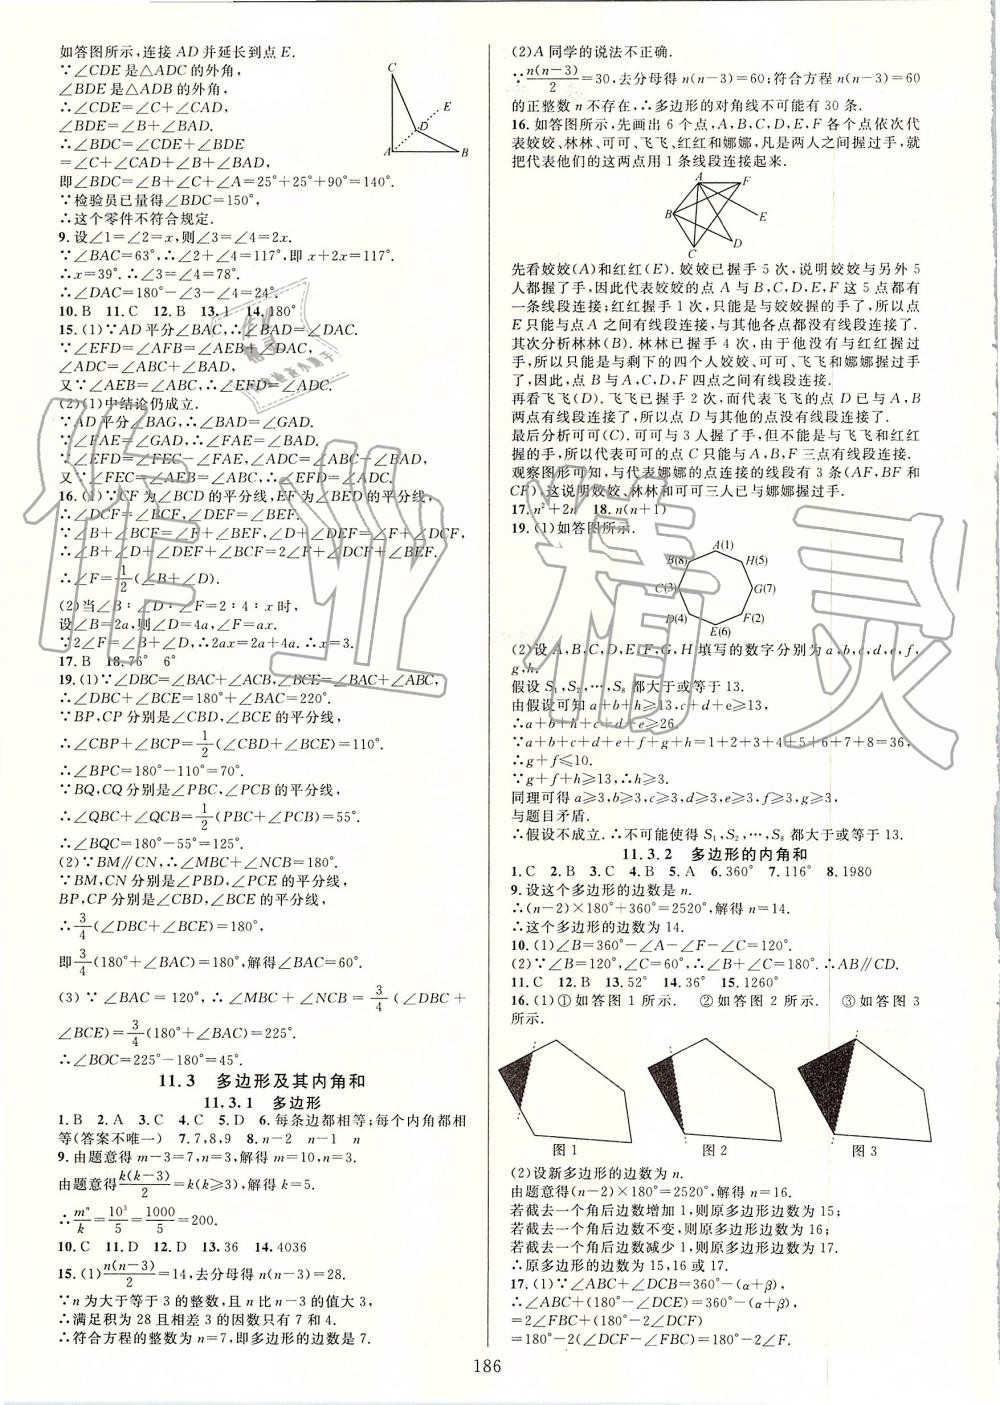 如答图所示,连接 AD 并延长到点 E.
∵∠CDE 是△ADC 的外角,
∠BDE 是△ADB 的外角,
∴∠CDE=∠C+∠CAD,
∠BDE=∠B+∠BAD.
∴∠BDC=∠CDE+∠BDE
=∠C+∠CAD+∠B+∠BAD.
即∠BDC=∠B+∠C+∠A=25°+25°+90°=140°.
∵检验员已量得∠BDC=150°,
∴这个零件不符合规定.
C
E
D
A
B
9.设∠1=∠2=x,则∠3=∠4=2x.
∵∠BAC=63°,∴∠2+∠4=117°,即 x+2x=117°.
∴x=39°.∴∠3=∠4=78°.
∴∠DAC=180°-∠3-∠4=24°.
10.B 11.C 12.B 13.1 14.180°
15.(1)∵AD 平分∠BAC,∴∠BAD=∠DAC.
∵∠EFD=∠AFB=∠AEB+∠DAC,
∠ADC=∠ABC+∠BAD,
又∵∠AEB=∠ABC,∴∠EFD=∠ADC.
(2)(1)中结论仍成立.
∵AD 平分∠BAG,∴∠BAD=∠GAD.
∵∠FAE=∠GAD,∴∠FAE=∠BAD.
∵∠EFD=∠FEC-∠FAE,∠ADC=∠ABC-∠BAD,
又∵∠FEC=∠AEB=∠ABC,∴∠EFD=∠ADC.
16.(1)∵CF 为∠BCD 的平分线,EF 为∠BED 的平分线,
∴∠DCF=∠BCF,∠DEF=∠BEF.
∵∠B+∠BCF=∠F+∠BEF,∠D+∠DEF=∠F+∠DCF
∴∠B+∠D+∠DEF+∠BCF=2∠F+∠DCF+∠BEF.
∴∠F=1/2(∠B+∠D).
(2)当∠B∶∠D∶∠F=2∶4∶x 时,
设∠B=2a,则∠D=4a,∠F=ax.
∵2∠F=∠B+∠D,∴2ax=2a+4a.∴x=3.
17.B 18.76° 6°
19.(1)∵∠DBC=∠BAC+∠ACB,∠BCE=∠BAC+∠ABC,
∴∠DBC+∠BCE=180°+∠BAC=220°.
∵BP,CP 分别是∠CBD,∠BCE 的平分线,
∴∠CBP+∠BCP=1/2(∠CBD+∠BCE)=110°.
∴∠BPC=180°-110°=70°.
∵BQ,CQ 分别是∠PBC,∠PCB 的平分线,
∴∠QBC+∠QCB=1/2(PBC+∠PCB)=55°.
∴∠BQC=180°-55°=125°.
(2)∵BM∥CN,∴∠MBC+∠NCB=180°.
∵BM,CN 分别是∠PBD,∠PCE 的平分线,
BP,CP 分别是∠CBD,∠BCE 的平分线,
∴3/4(∠DBC+∠BCE)=180°,
即3/4(180°+∠BAC)=180°,解得∠BAC=60°.
(3)∵∠BAC=120°,∴∠MBC+∠NCB=3/4(∠DBC+
∠BCE)=3/4(180°+∠BAC)=225°.
∴∠BOC=225°-180°=45°.
11.3 多边形及其内角和
11.3.1 多边形
1.B 2.A 3.C 4.C 5.D 6.每条边都相等;每个内角都相
等(答案不唯一) 7.7,8,9 8.n-2 n-1 n
9.由题意得 m-3=7,n=3,解得 m=10,n=3.
由题意得k(k-3)/2=k(k⩾3),解得 k=5.
∴mⁿ/k=10³/5=1000/5=200.
10.C 11.D 12.D 13.36 14.4036
15.(1)n(n-3)/2=14,去分母得 n(n-3)=28.
∵n 为大于等于 3 的整数,且 n 比 n-3 的值大 3,
∴满足积为 28 且相差 3 的因数只有 7 和 4.
∴符合方程的整数 n=7,即多边形的边数是 7.
(2)A 同学的说法不正确.
∵n(n-3)/2=30,去分母得 n(n-3)=60;符合方程 n(n-3)=60
的正整数 n 不存在,∴多边形的对角线不可能有 30 条.
16.如答图所示,先画出 6 个点,A,B,C,D,E,F 各个点依次代
表姣姣、林林、可可、飞飞、红红和娜娜,凡是两人之间握过手,就
把代表他们的这两点用 1 条线段连接起来.
A
F
B
E
D
C
先看姣姣(A)和红红(E).姣姣已握手 5 次,说明姣姣与另外 5
人都握了手,因此代表姣姣的点 A 与代表其余人的 5 个点都有
一条线段连接;红红握手 1 次,只能是与姣姣握的手了,所以点
E 只能与点 A 之间有线段连接,与其他各点都没有线段连接了.
其次分析林林(B).林林已握手 4 次,由于他没有与红红握过
手,所以只能是与剩下的四个人姣姣、可可、飞飞和娜娜握过手
了,因此,点 B 与 A,C,D,F 四点之间有线段连接.
再看飞飞(D).飞飞已握手 2 次,而代表飞飞的点 D 已与 A,B
两点有线段连接了,所以点 D 与其他的点没有线段连接了.
最后分析可可(C).可可与 3 人握了手,但不能是与飞飞和红红
握的手,所以代表可可的点 C 只能与 A,B,F 三点有线段连接.
观察图形可知,与代表娜娜的点连接的线段有 3 条(AF,BF 和
CF).这说明姣姣、林林和可可三人已与娜娜握过手.
17.n²+2n 18.n(n+1)
19.(1)如答图所示.
A(1)
B(8)
H(5)
C(3)
G(7)
D(4)
F(2)
E(6)
(2)设 A,B,C,D,E,F,G,H 填写的数字分别为 a,b,c,d,e,f,
g,h.
假设 S₁,S₂,…,S₈ 都大于或等于 13.
由假设可知 a+b+h⩾13,c+d+e⩾13,
∴a+b+h+c+d+e⩾26.
∵a+b+c+d+e+f+g+h=1+2+3+4+5+6+7+8=36,
∴g+f⩽10.
∵g+f+h⩾13,∴h⩾3.
同理可得 a⩾3,b⩾3,c⩾3,d⩾3,e⩾3,f⩾3,g⩾3,
与题目矛盾.
∴假设不成立.∴不可能使得 S₁,S₂,…,S₈ 都大于或等于 13.
11.3.2 多边形的内角和
1.C 2.B 3.B 4.B 5.A 6.360° 7.116° 8.1980
9.设这个多边形的边数是 n.
∴(n-2)×180°+360°=2520°,解得 n=14.
∴这个多边形的边数为 14.
10.(1)∠B=360°-∠A-∠F-∠C=120°.
(2)∵∠B=120°,∠C=60°,∴∠B+∠C=180°.∴AB∥CD.
11.C 12.B 13.52° 14.36° 15.1260°
16.(1)①如答图 1 所示. ②如答图 2 所示. ③如答图 3
所示.
图 1
图 2
图 3
(2)设新多边形的边数为 n.
由题意得(n-2)×180°=2520°,解得 n=16.
若截去一个角后边数增加 1,则原多边形边数为 15;
若截去一个角后边数不变,则原多边形边数为 16;
若截去一个角后边数减少 1,则原多边形边数为 17.
∴原多边形的边数为 15,16 或 17.
17.(1)∵∠ABC+∠DCB=360°-(α+β),
∴∠ABC+(180°-∠DCE)=360°-(α+β)
=2∠FBC+(180°-2∠DCF)
=180°-2(∠DCF-∠FBC)=180°-2∠F.
186
作业精灵